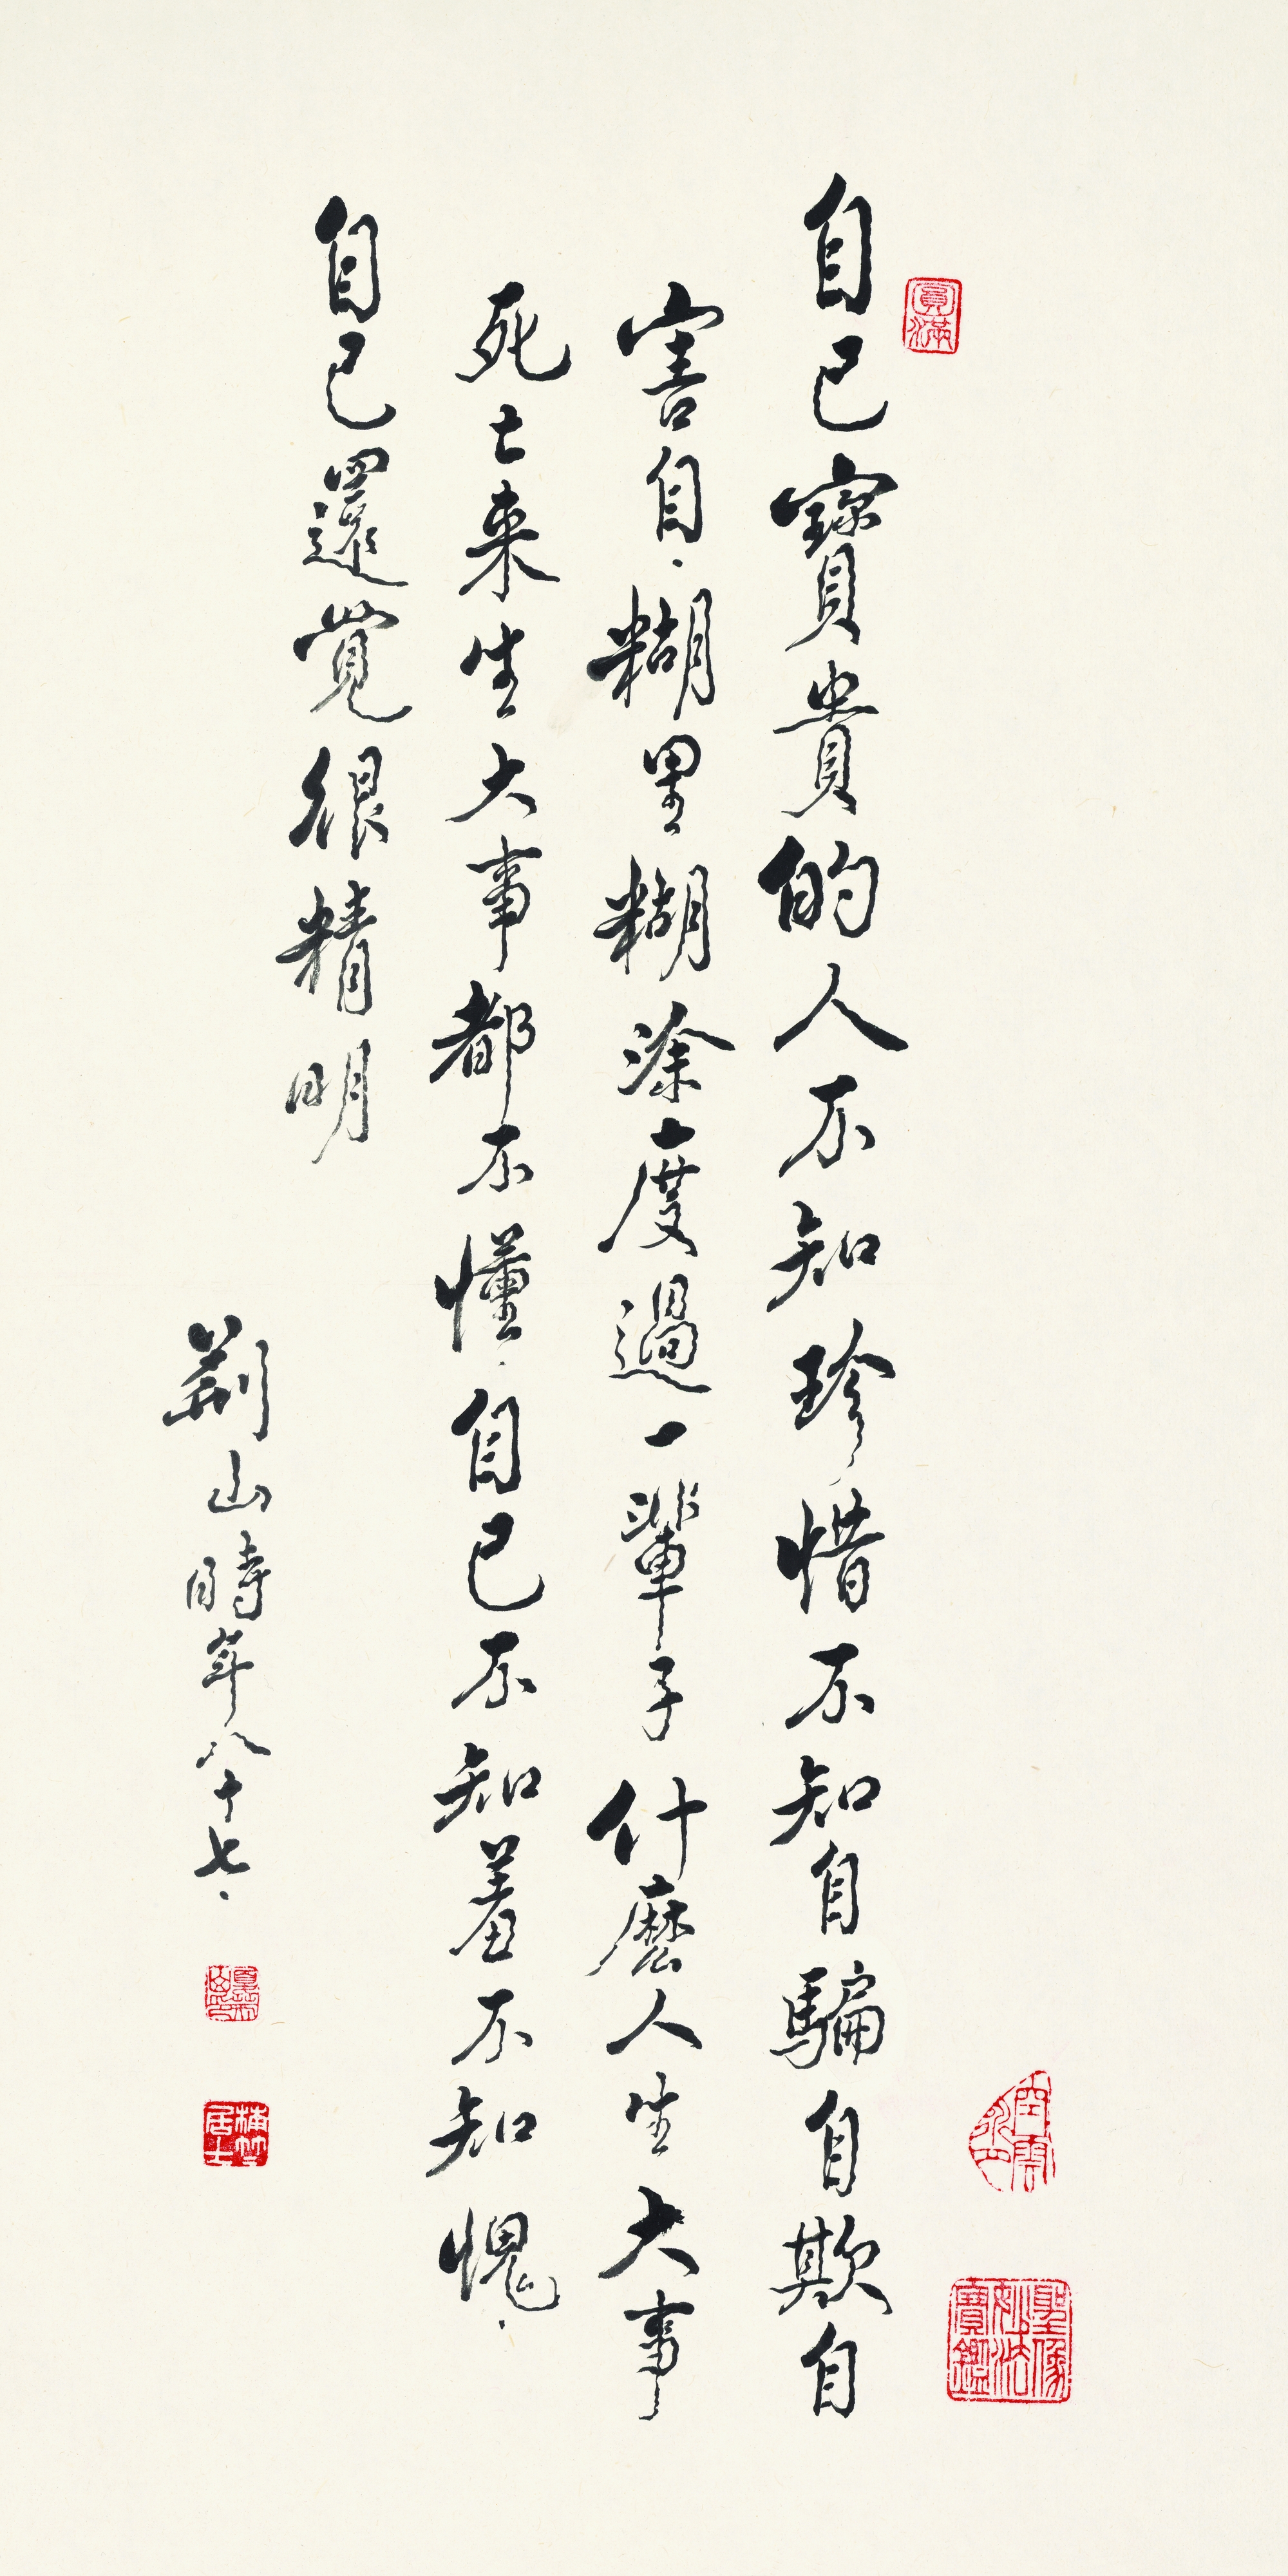 自己寶貴的人不知珍惜不知自騙自欺自
害自糊里糊涂度過一輩子什麼人生大事
死亡来生大事都不懂自己不知羞不知愧
自己還覺很精明
荆山時年八十七
圓滿
梅竹居士
聖像妙法寶鑑